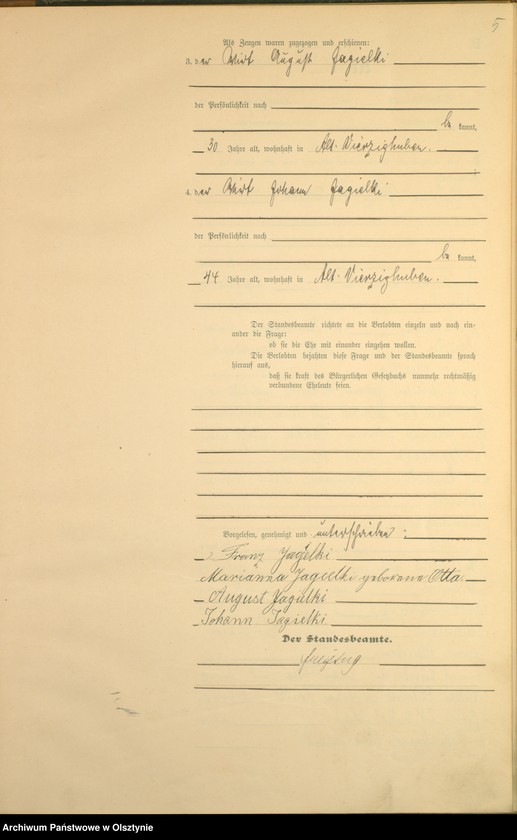 5
Als Zeugen waren zugezogen und erschienen:
3. der Wirt August Jagielki
der Persönlichkeit nach
be kannt,
30 Jahre alt, wohnhaft in Alt-Vierzighuben.
4. der Wirt Johann Jagielki
der Persönlichkeit nach
be kannt,
44 Jahre alt, wohnhaft in Alt-Vierzighuben.
Der Standesbeamte richtete an die Verlobten einzeln und nach ein-
ander die Frage:
ob sie die Ehe mit einander eingehen wollen.
Die Verlobten bejahten diese Frage und der Standesbeamte sprach
hierauf aus,
daß sie kraft des Bürgerlichen Gesetzbuchs nunmehr rechtmäßig
verbundene Eheleute seien.
Vorgelesen, genehmigt und unterschrieben:
Franz Jagielki
Marianna Jagielki geborene Otta
August Jagielki
Johann Jagielki
Der Standesbeamte.
Archiwum Państwowe w Olsztynie